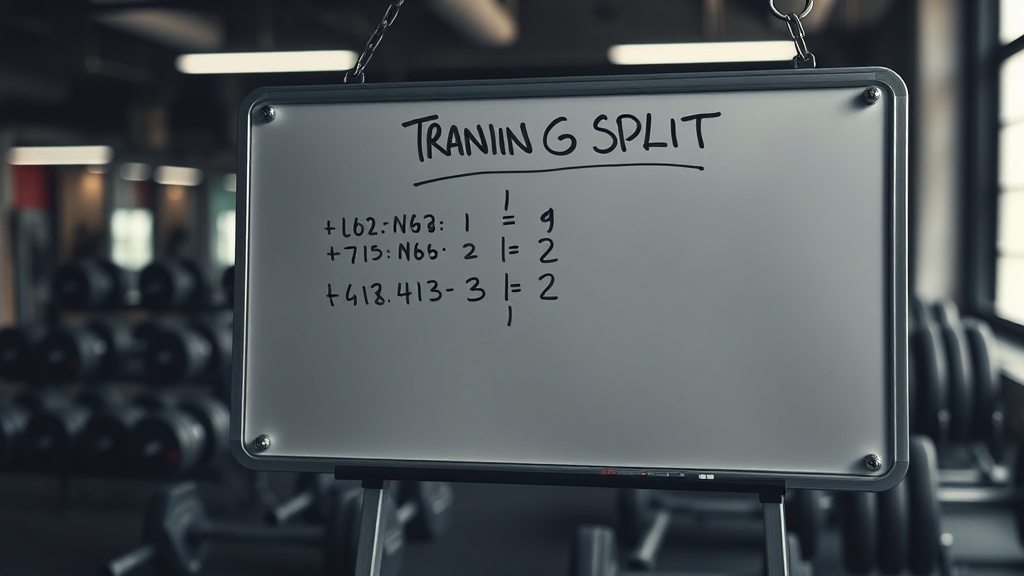 TRANIN G SPLIT
+L62:-N63: 1 = 9
+715:N66· 2 |= 2
+418.413- 3 |= 2